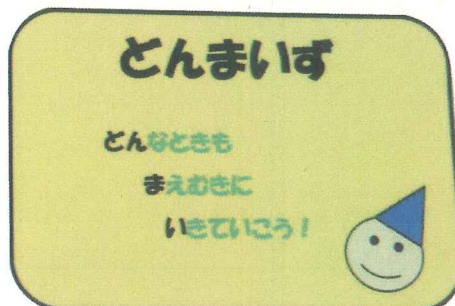 どんまいず
どんなときも
まえむきに
いきていこう！